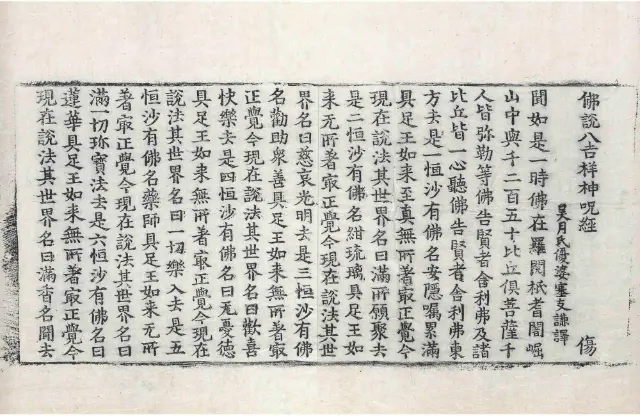 佛說八吉祥神呪經
吳月氏優婆塞支謙譯
傷
聞如是一時佛在羅閱祇耆闍崛
山中與千二百五十比丘俱菩薩千
人皆弥勒等佛告賢者舍利弗及諸
比丘皆一心聽佛告賢者舍利弗東
方去是一恒沙有佛名安隱嘱累滿
具足王如来至真無所著冣正覺今
現在說法其世界名曰滿所願聚去
是二恒沙有佛名紺琉璃具足王如
来无所著冣正覺今現在說法其世
界名曰慈哀光明去是三恒沙有佛
名勸助衆善具足王如来無所著冣
正覺今現在說法其世界名曰歡喜
快樂去是四恒沙有佛名曰无憂德
具足王如来無所著冣正覺今現在
說法其世界名曰一切樂入去是五
恒沙有佛名藥師具足王如来无所
著冣正覺今現在說法其世界名曰
滿一切珎寶法去是六恒沙有佛名曰
蓮華具足王如来无所著冣正覺今
現在說法其世界名曰滿香名聞去